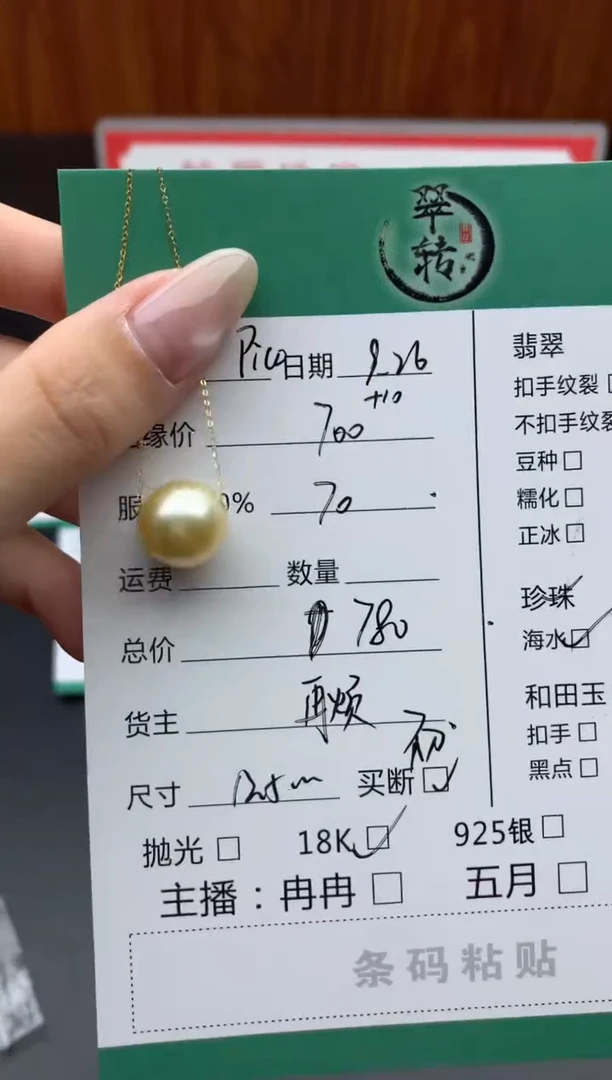 翠
转
Pico 日期 9.26
+10
缘价 700
服 0% 70
运费 数量
总价 780
货主
尺寸 12.5m 买断
抛光 18K 925银
主播：冉冉 五月
条码粘贴
翡翠
扣手纹裂
不扣手纹裂
豆种
糯化
正冰
珍珠
海水
和田玉
扣手
黑点